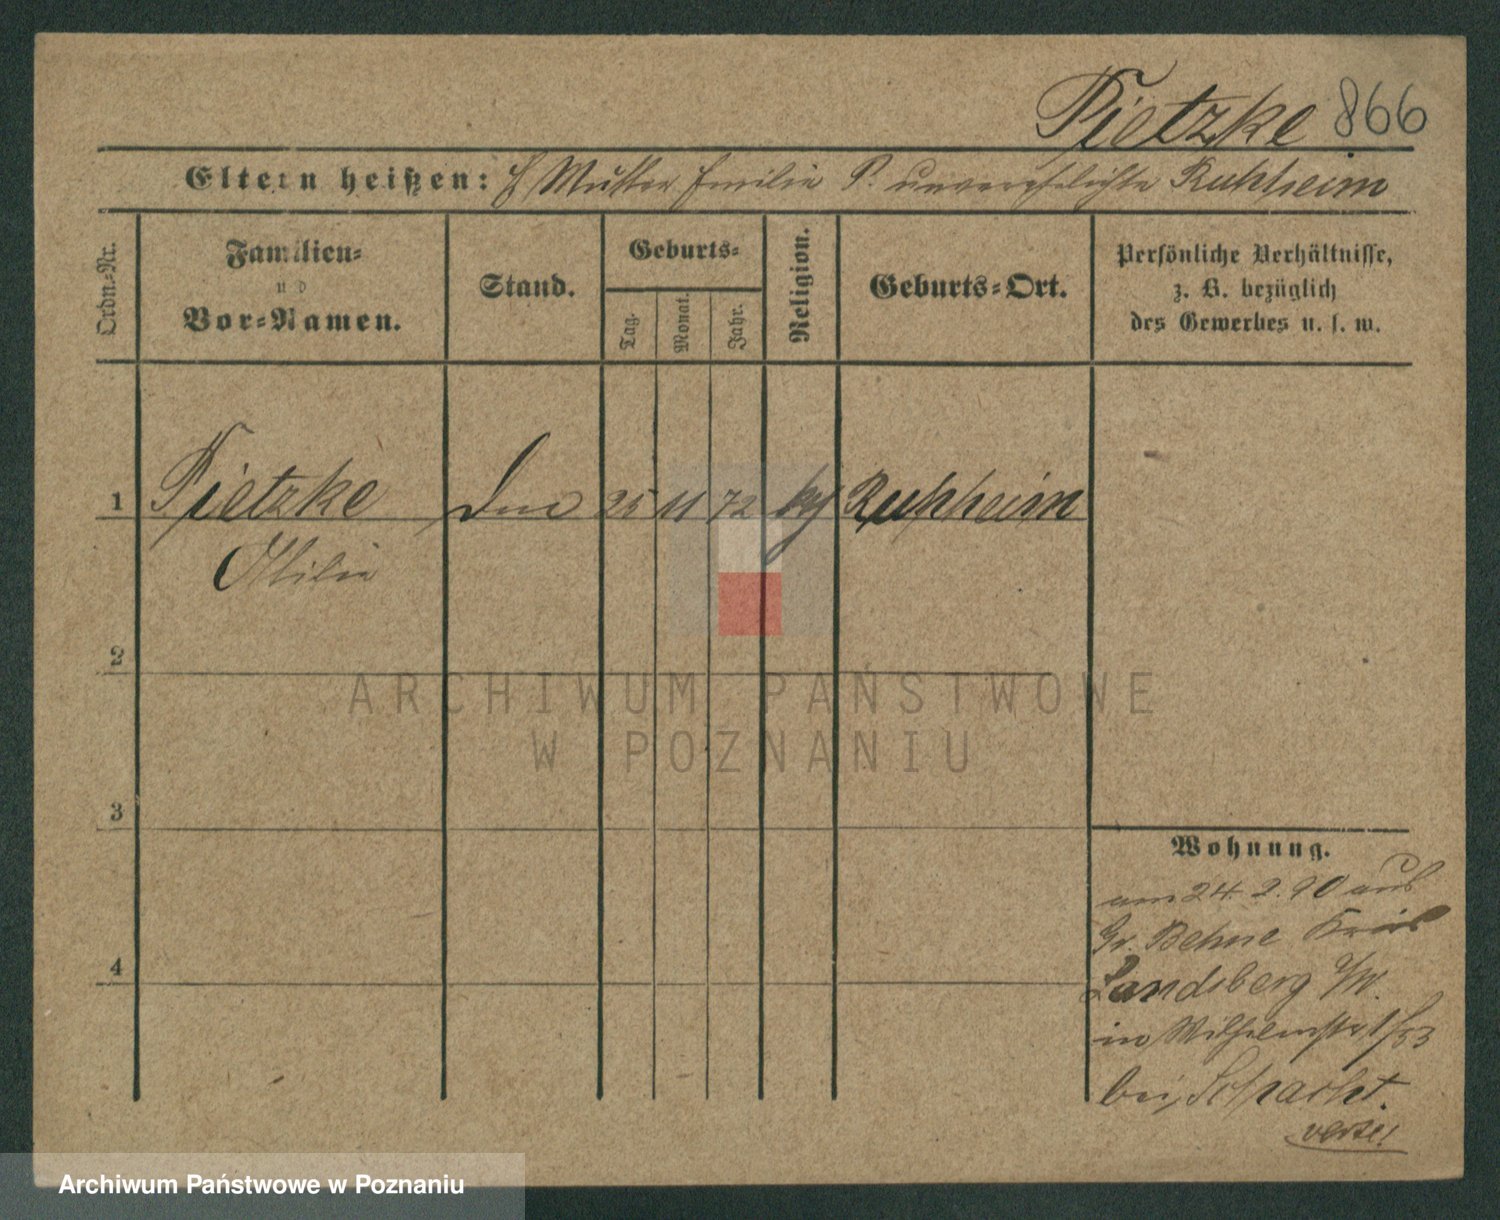 Pietzke 866
Eltern heißen: Mutter Emilie P. unverehelichte Ruhheim
Ordn.-Nr.
Familien-
und
Vor-Namen.
Stand.
Geburts-
Tag.
Monat.
Jahr.
Religion.
Geburts-Ort.
Persönliche Verhältnisse,
z. B. bezüglich
des Gewerbes u. s. w.
1 Pietzke 25 11 72 Ruhheim
Ottilie
2
ARCHIWUM PAŃSTWOWE
W POZNANIU
3
Wohnung.
am 24.2.90 aus
Gr. Behne Kreis
4
Landsberg
in Wilhelmstr.
bei Schacht.
verte!
Archiwum Państwowe w Poznaniu